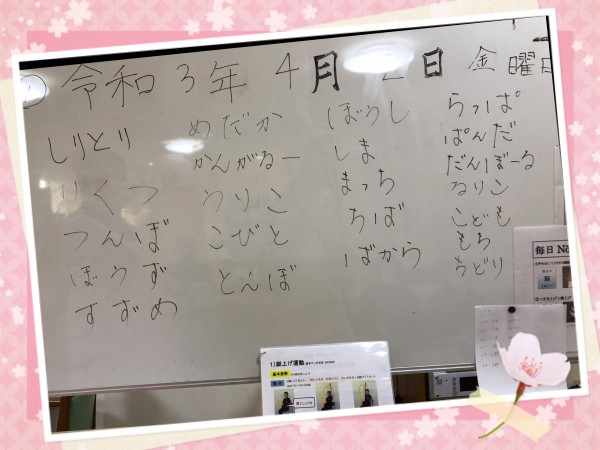 令和3年4月2日 金曜日
しりとり
りくつ
つんぼ
ぼうず
すずめ
めだか
かんがるー
うりこ
こびと
とんぼ
ぼうし
しま
まっち
ちば
ばから
らっぱ
ぱんだ
だんぼーる
るりこ
こども
もち
ちどり
毎日
1)脚上げ運動